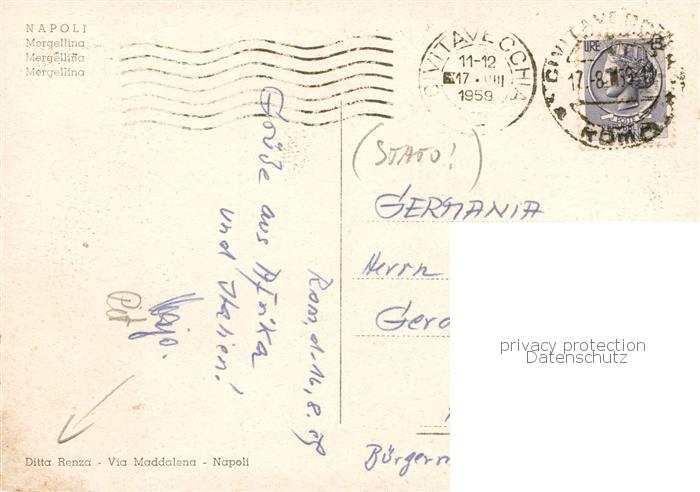 NAPOLI
Mergellina
Mergelliña
Mergellina
CIVITAVECCHIA
11-12
17. VIII
1959
LIRE
CIVITAVECCHIA
ROMA
(STATO!)
GERMANIA
Herrn
Gero
Bürgerm
Rom, d. 16.8.59
Grüße aus Afrika
und Italien!
privacy protection
Datenschutz
Ditta Renza - Via Maddalena - Napoli